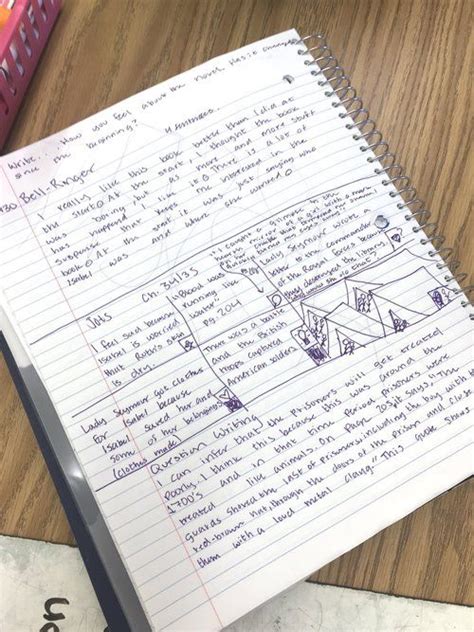 Write... How you feel about the novel. Has it changed
since the beginning?
4 sentences.
/30 Bell-Ringer
I really like this book better than I did at
the start. At the start, I thought the book
was boring, but like more and more stuff
has happened in it. There is a lot of
suspense that keeps me interested in the
book. At the start it was just saying who
Isabel was and where she worked.
JNS
Ch. 34/35
I feel sad because
Isabel is worried
that Ruth's skin
is dry.
Lady Seymour got clothes
for Isabel because
Isabel saved her and
some of her belongings
(clothes made)
"Blood was
running like
water"
Pg. 204
There was a battle
and the British
troops captured
American soldiers
"I caught a glimpse in the
mirror of a girl with a mark
Lady Seymour wrote a
letter to the commander
of the Royal Forces because
they destroyed the library.
Question Writing
I can infer that the prisoners will get treated
poorly. I think this because this was around the
1700's and in that time period prisoners were
treated like animals. On page 203 it says, "The
guards shoved the last of prisoners, including the boy with the
red-brown hat through the doors of the prison and closed
them with a loud metal clang." This quote shows